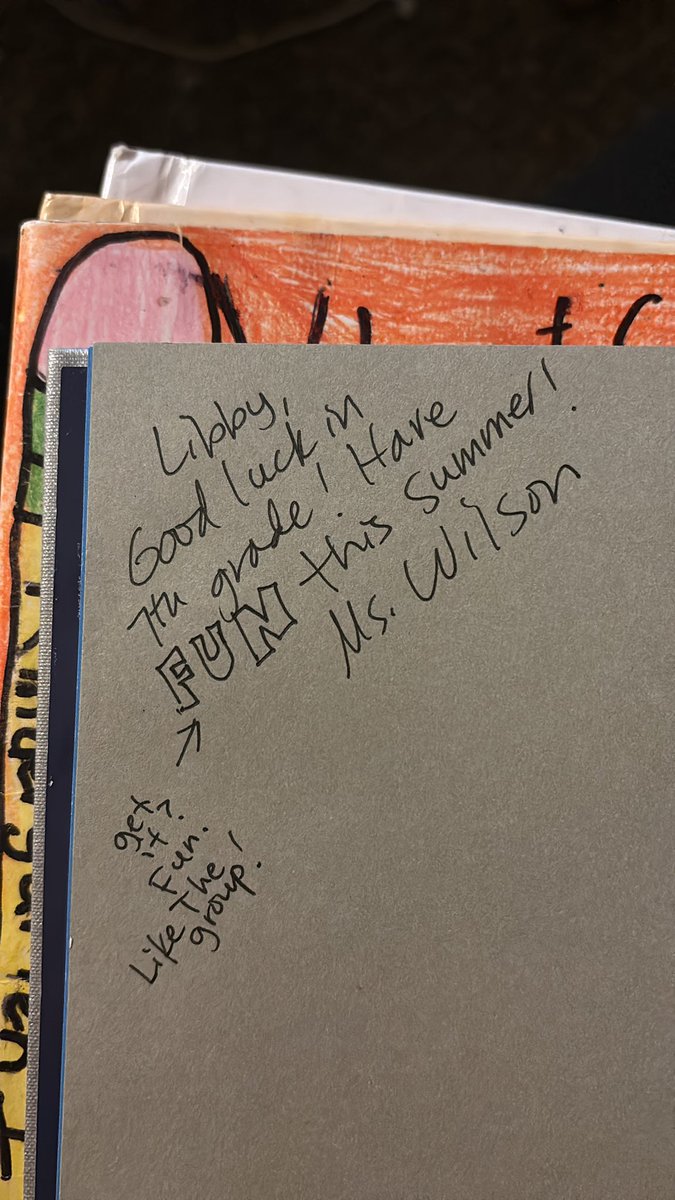 Libby,
Good luck in
7th grade! Have
FUN this summer!
Ms. Wilson
→
get
it?
Fun.
Like The
group!